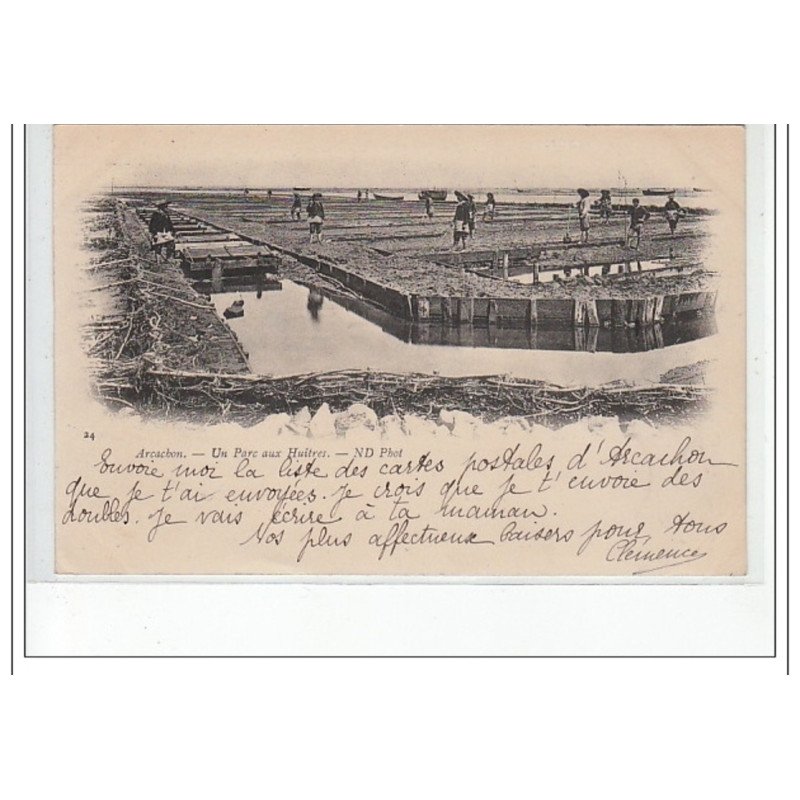 24
Arcachon. — Un Parc aux Huîtres. — ND Phot
Envoie moi la liste des cartes postales d'Arcachon
que je t'ai envoyées. Je crois que je t'envoie des
doubles. Je vais écrire à ta maman.
Nos plus affectueux baisers pour tous
Clémence